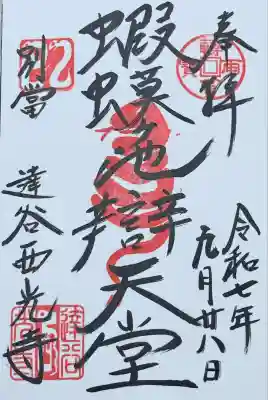 奉拝
令和七年
元月廿八日
蝦蟆池辯天堂
別當
達谷西光寺